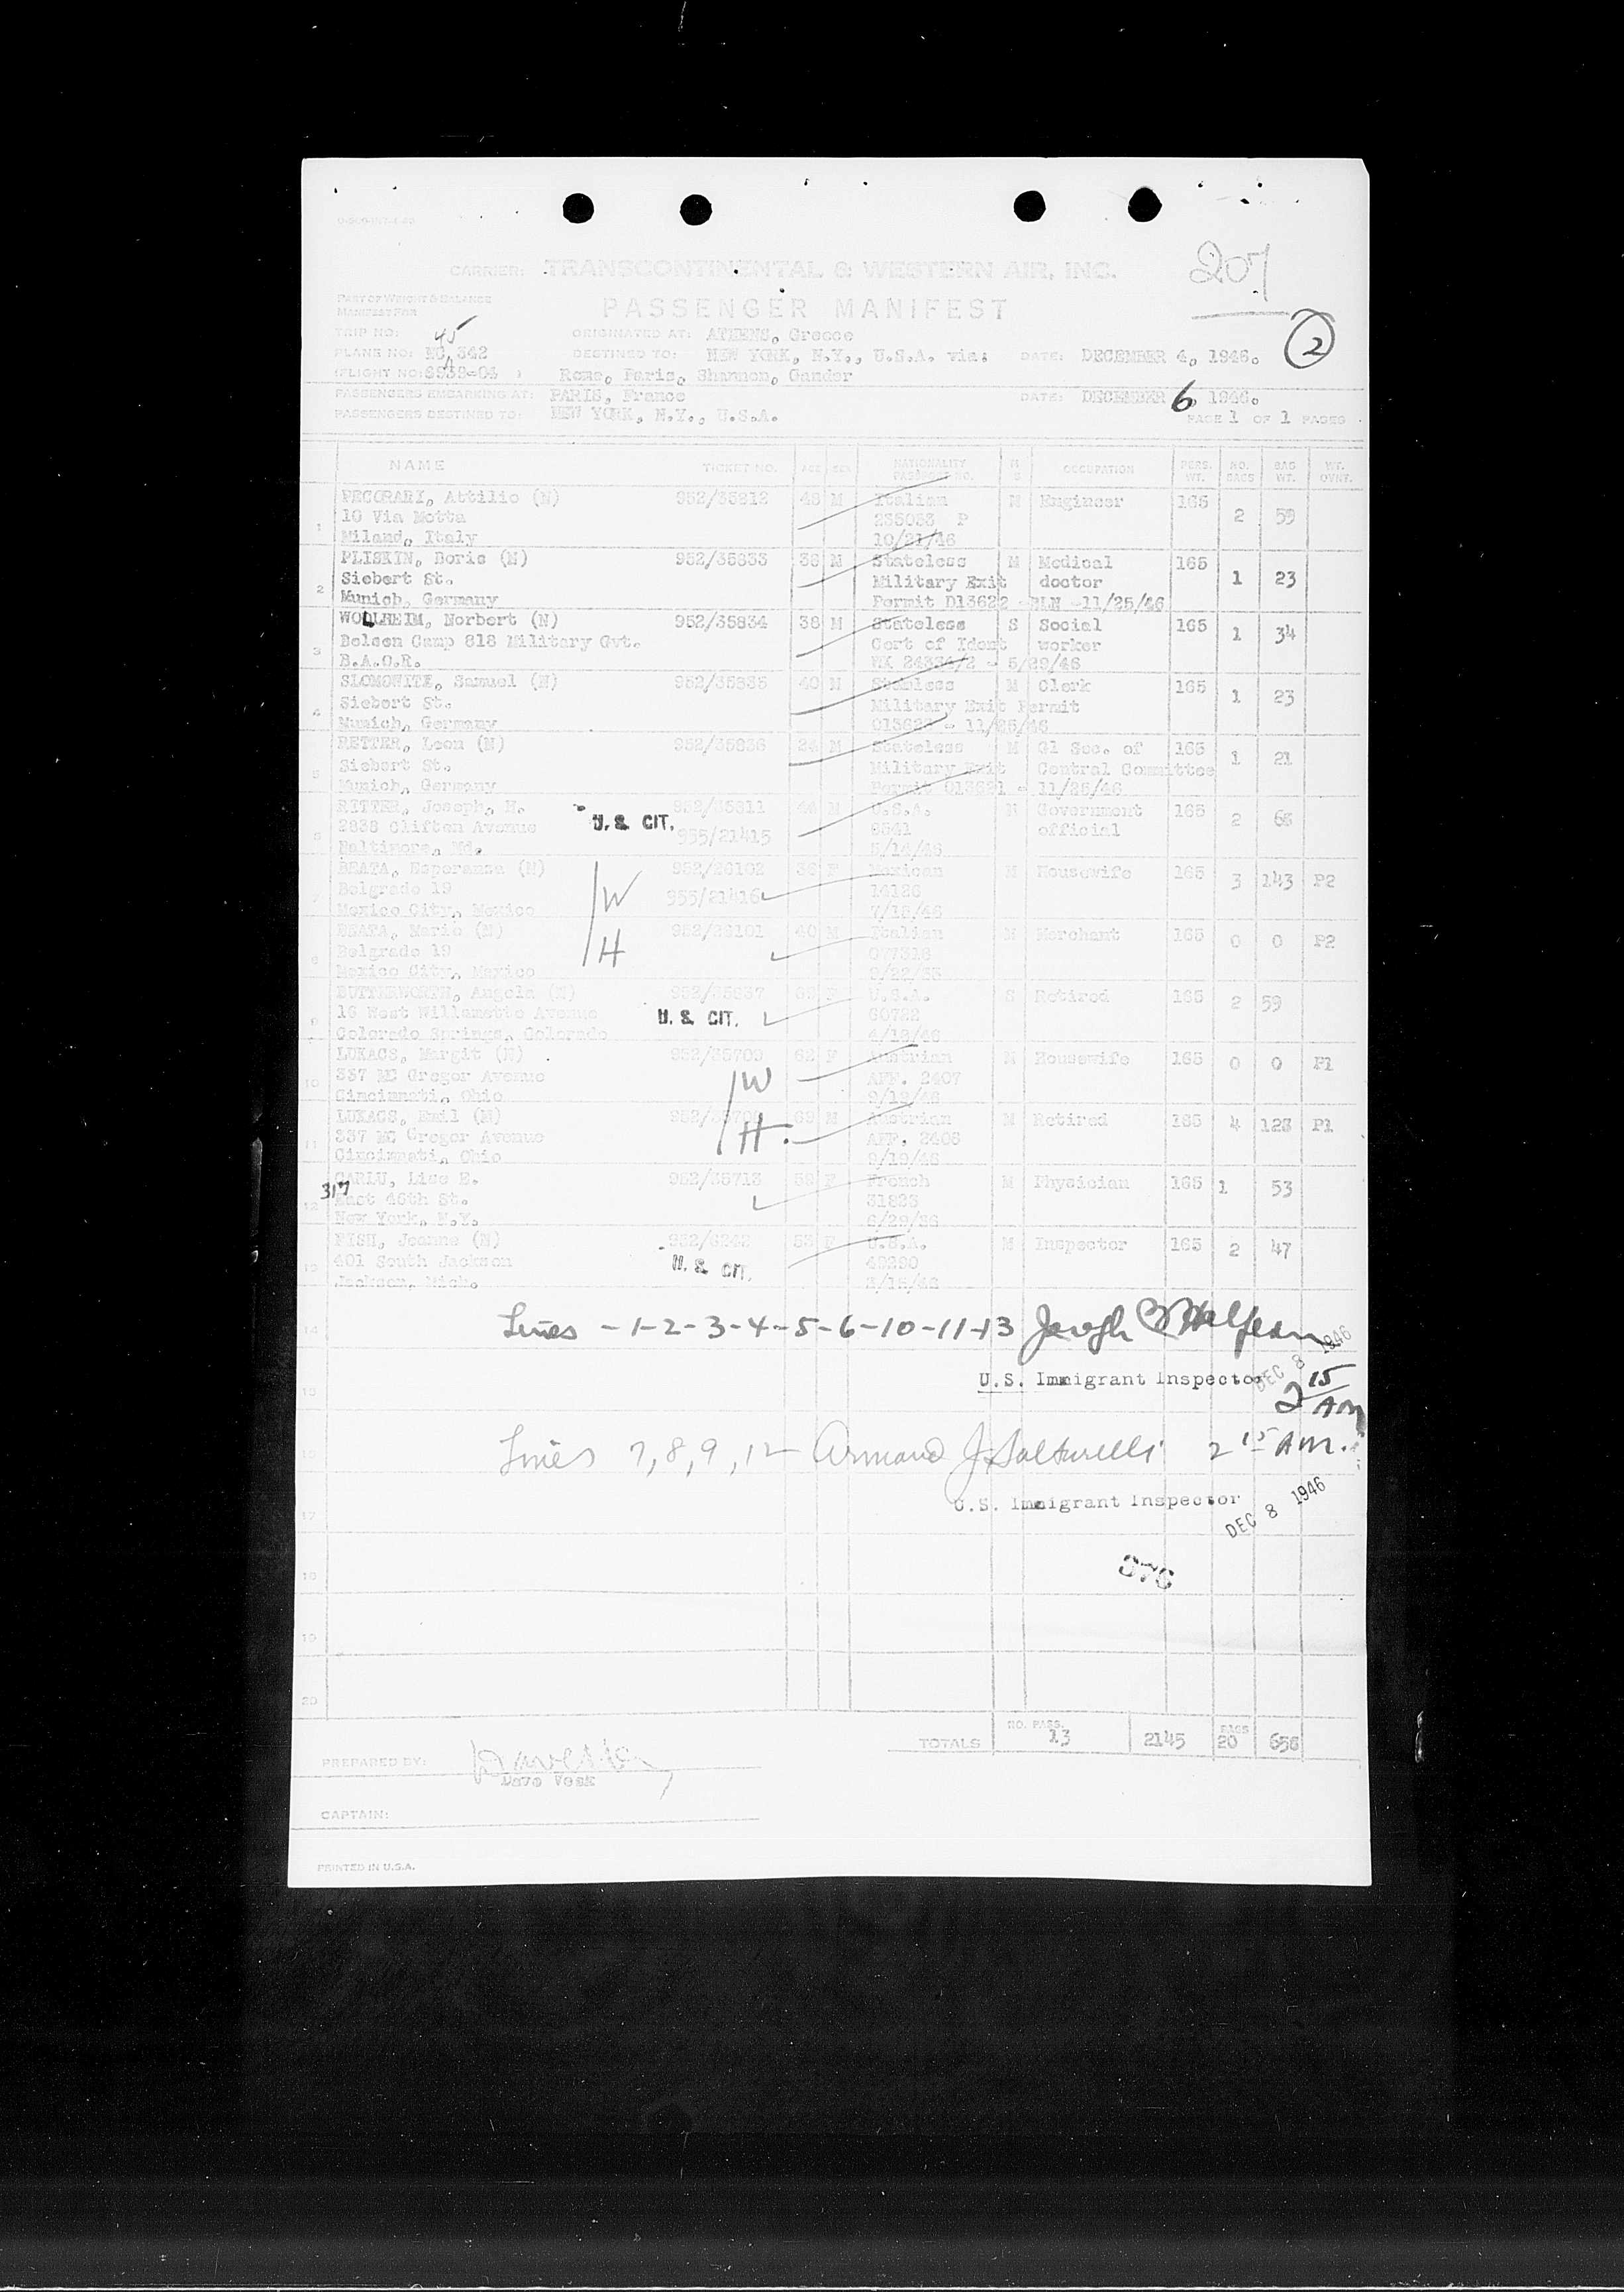 207
CARRIER: TRANSCONTINENTAL & WESTERN AIR, INC.
PART OF WEIGHT & BALANCE
MANIFEST FOR
PASSENGER MANIFEST
2
TRIP NO: 45
ORIGINATED AT: ATHENS, Greece
PLANE NO: NC 342
DESTINED TO: NEW YORK, N.Y., U.S.A. via:
DATE: DECEMBER 4, 1946.
(FLIGHT NO: )
Rome, Paris, Shannon, Gander
PASSENGERS EMBARKING AT: PARIS, France
DATE: DECEMBER 6, 1946.
PASSENGERS DESTINED TO: NEW YORK, N.Y., U.S.A.
PAGE 1 OF 1 PAGES
NAME TICKET NO. AGE SEX NATIONALITY PASSPORT NO. M S OCCUPATION PERS. WT. NO. BAGS BAG. WT. WT. OVNT.
PECORARI, Attilio (N) 952/35812 48 M Italian M Engineer 165
1 10 Via Motta 235083 P 2 59
Milano, Italy 10/21/46
PLISKIN, Boris (N) 952/35833 38 M Stateless M Medical 165
2 Siebert St. Military Exit doctor 1 23
Munich, Germany Permit D13622 -BLN -11/25/46
WOLLHEIM, Norbert (N) 952/35834 38 M Stateless S Social 165
3 Belsen Camp 818 Military Gvt. Cert of Ident worker 1 34
B.A.O.R. WX 24334/2 - 5/29/46
SLOMOWITZ, Samuel (N) 952/35835 40 M Stateless M Clerk 165
4 Siebert St. Military Exit Permit 1 23
Munich, Germany 013623 - 11/25/46
RETTER, Leon (N) 952/35836 24 M Stateless M Gl Sec. of 165
5 Siebert St. Military Exit Central Committee 1 21
Munich, Germany Permit 013621 - 11/25/46
RITTER, Joseph, H. 952/35811 44 M U.S.A. M Government 165
6 2838 Clifton Avenue U. S. CIT. 955/21415 9541 official 2
Baltimore, Md. 5/14/46
BEATA, Esperanza (N) 952/26102 36 F Mexican M Housewife 165
7 Belgrado 19 W 955/21416 14126 3 143 P2
Mexico City, Mexico 7/15/46
BEATA, Mario (N) 952/26101 40 M Italian M Merchant 165
8 Belgrado 19 H 077316 0 0 P2
Mexico City, Mexico
BUTTERWORTH, Angela (N) 952/35837 F U.S.A. S Retired 165
9 16 West Willamette Avenue U. S. CIT. 60722 2 59
Colorado Springs, Colorado 4/18/46
LUKACS, Margit (N) 952/35709 62 F Austrian M Housewife 165
10 337 MC Gregor Avenue W AFF. 2407 0 0 P1
Cincinnati, Ohio 9/19/46
LUKACS, Emil (N) 69 M Austrian M Retired 165
11 337 MC Gregor Avenue H. AFF. 2406 4 128 P1
Cincinnati, Ohio 9/19/46
CARLU, Lise E. 952/35713 59 F French M Physician 165
12 317 East 46th St. 31823 1 53
New York, N.Y. 6/29/36
FISH, Jeanne (N) 952/6242 53 F U.S.A. M Inspector 165
13 401 South Jackson U. S. CIT. 49290 2 47
Jackson, Mich. 3/15/46
14 Lines -1-2-3-4-5-6-10-11-13
DEC 8 1946
15 U.S. Immigrant Inspector
2 15 AM
16 Lines 7,8,9,12 Armand J. 2 15 AM.
U.S. Immigrant Inspector
17
DEC 8 1946
18 376
19
20
TOTALS NO. PASS. 13 2145 BAGS 20 656
PREPARED BY:
Dave Vesk
CAPTAIN:
PRINTED IN U.S.A.